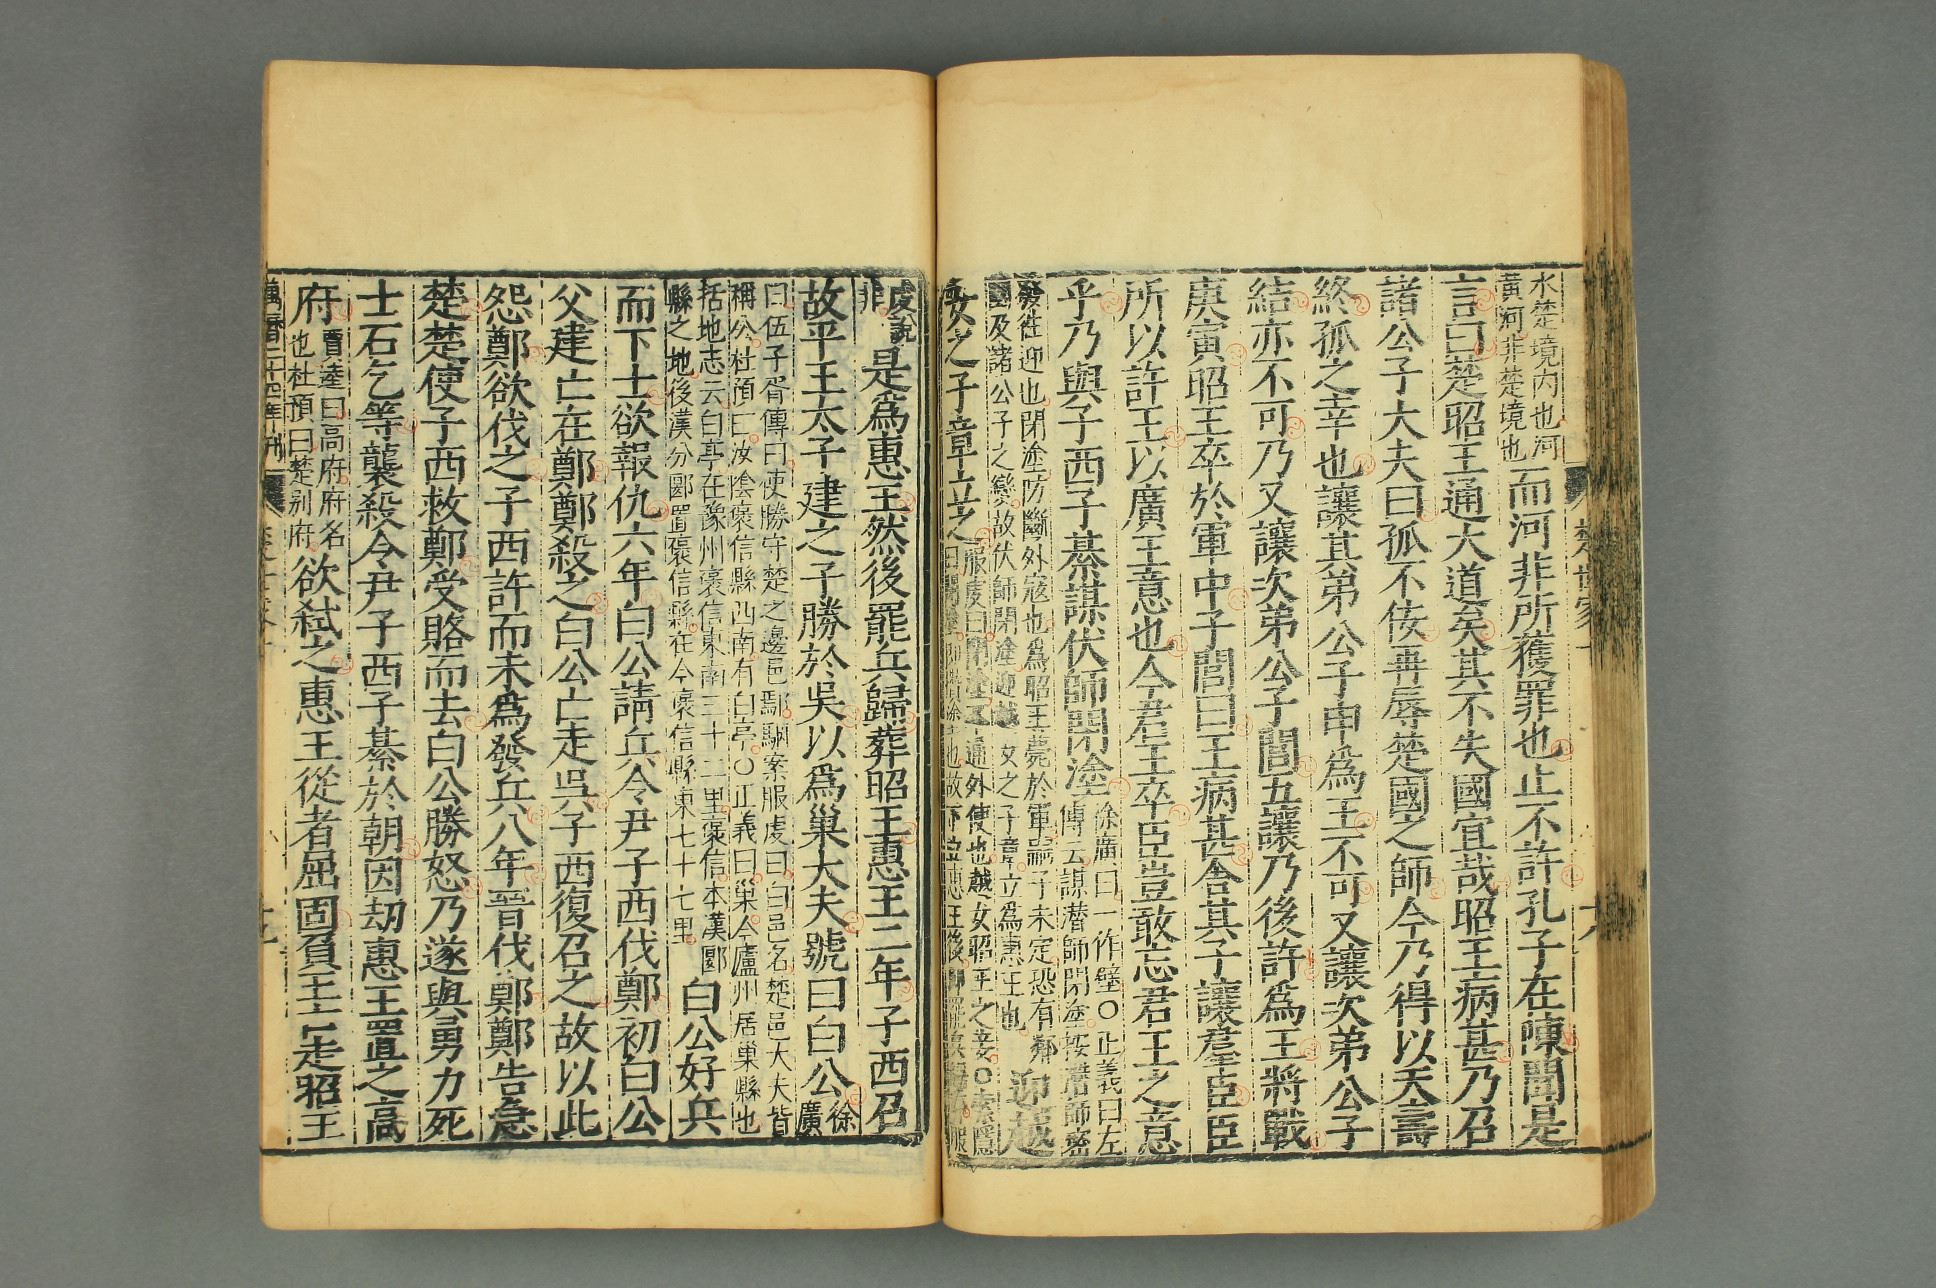 水楚境内也河
黃河非楚境也
而河非所獲罪也止不許孔子在陳聞是
言曰楚昭王通大道矣其不失國宜哉昭王病甚乃召
諸公子大夫曰孤不佞再辱楚國之師今乃得以天壽
終孤之幸也讓其弟公子申爲王不可又讓次弟公子
結亦不可乃又讓次弟公子閭五讓乃後許爲王將戰
庚寅昭王卒於軍中子閭曰王病甚舍其子讓羣臣臣
所以許王以廣王意也今君王卒臣豈敢忘君王之意
乎乃與子西子綦謀伏師閉塗
徐廣曰一作壁○正義曰左
傳云謀潛師閉塗按潛師密
發往迎也閉塗防斷外寇也爲昭王薨於軍嗣子未定恐有鄰
國及諸公子之變故伏師閉塗迎越女之子章立爲惠王也
迎越
女之子章立之
服虔曰閉塗不通外使也越女昭王之妾○索隱
是爲惠王然後罷兵歸葬昭王惠王二年子西召
故平王太子建之子勝於吳以爲巢大夫號曰白公
徐
廣
曰伍子胥傳曰使勝守楚之邊邑鄢駰案服虔曰白邑名楚邑大夫皆
稱公杜預曰汝陰襃信縣西南有白亭○正義曰巢今廬州居巢縣也
括地志云白亭在豫州襃信東南三十二里襃信本漢郾
縣之地後漢分郾置襃信縣在今襃信縣東七十七里
白公好兵
而下士欲報仇六年白公請兵令尹子西伐鄭初白公
父建亡在鄭鄭殺之白公亡走吳子西復召之故以此
怨鄭欲伐之子西許而未爲發兵八年晉伐鄭鄭告急
楚楚使子西救鄭受賂而去白公勝怒乃遂與勇力死
士石乞等襲殺令尹子西子綦於朝因劫惠王置之高
府
賈逵曰高府府名
也杜預曰楚别府
欲弑之惠王從者屈固負王亡走昭王
萬曆二十四年刊
楚世家十